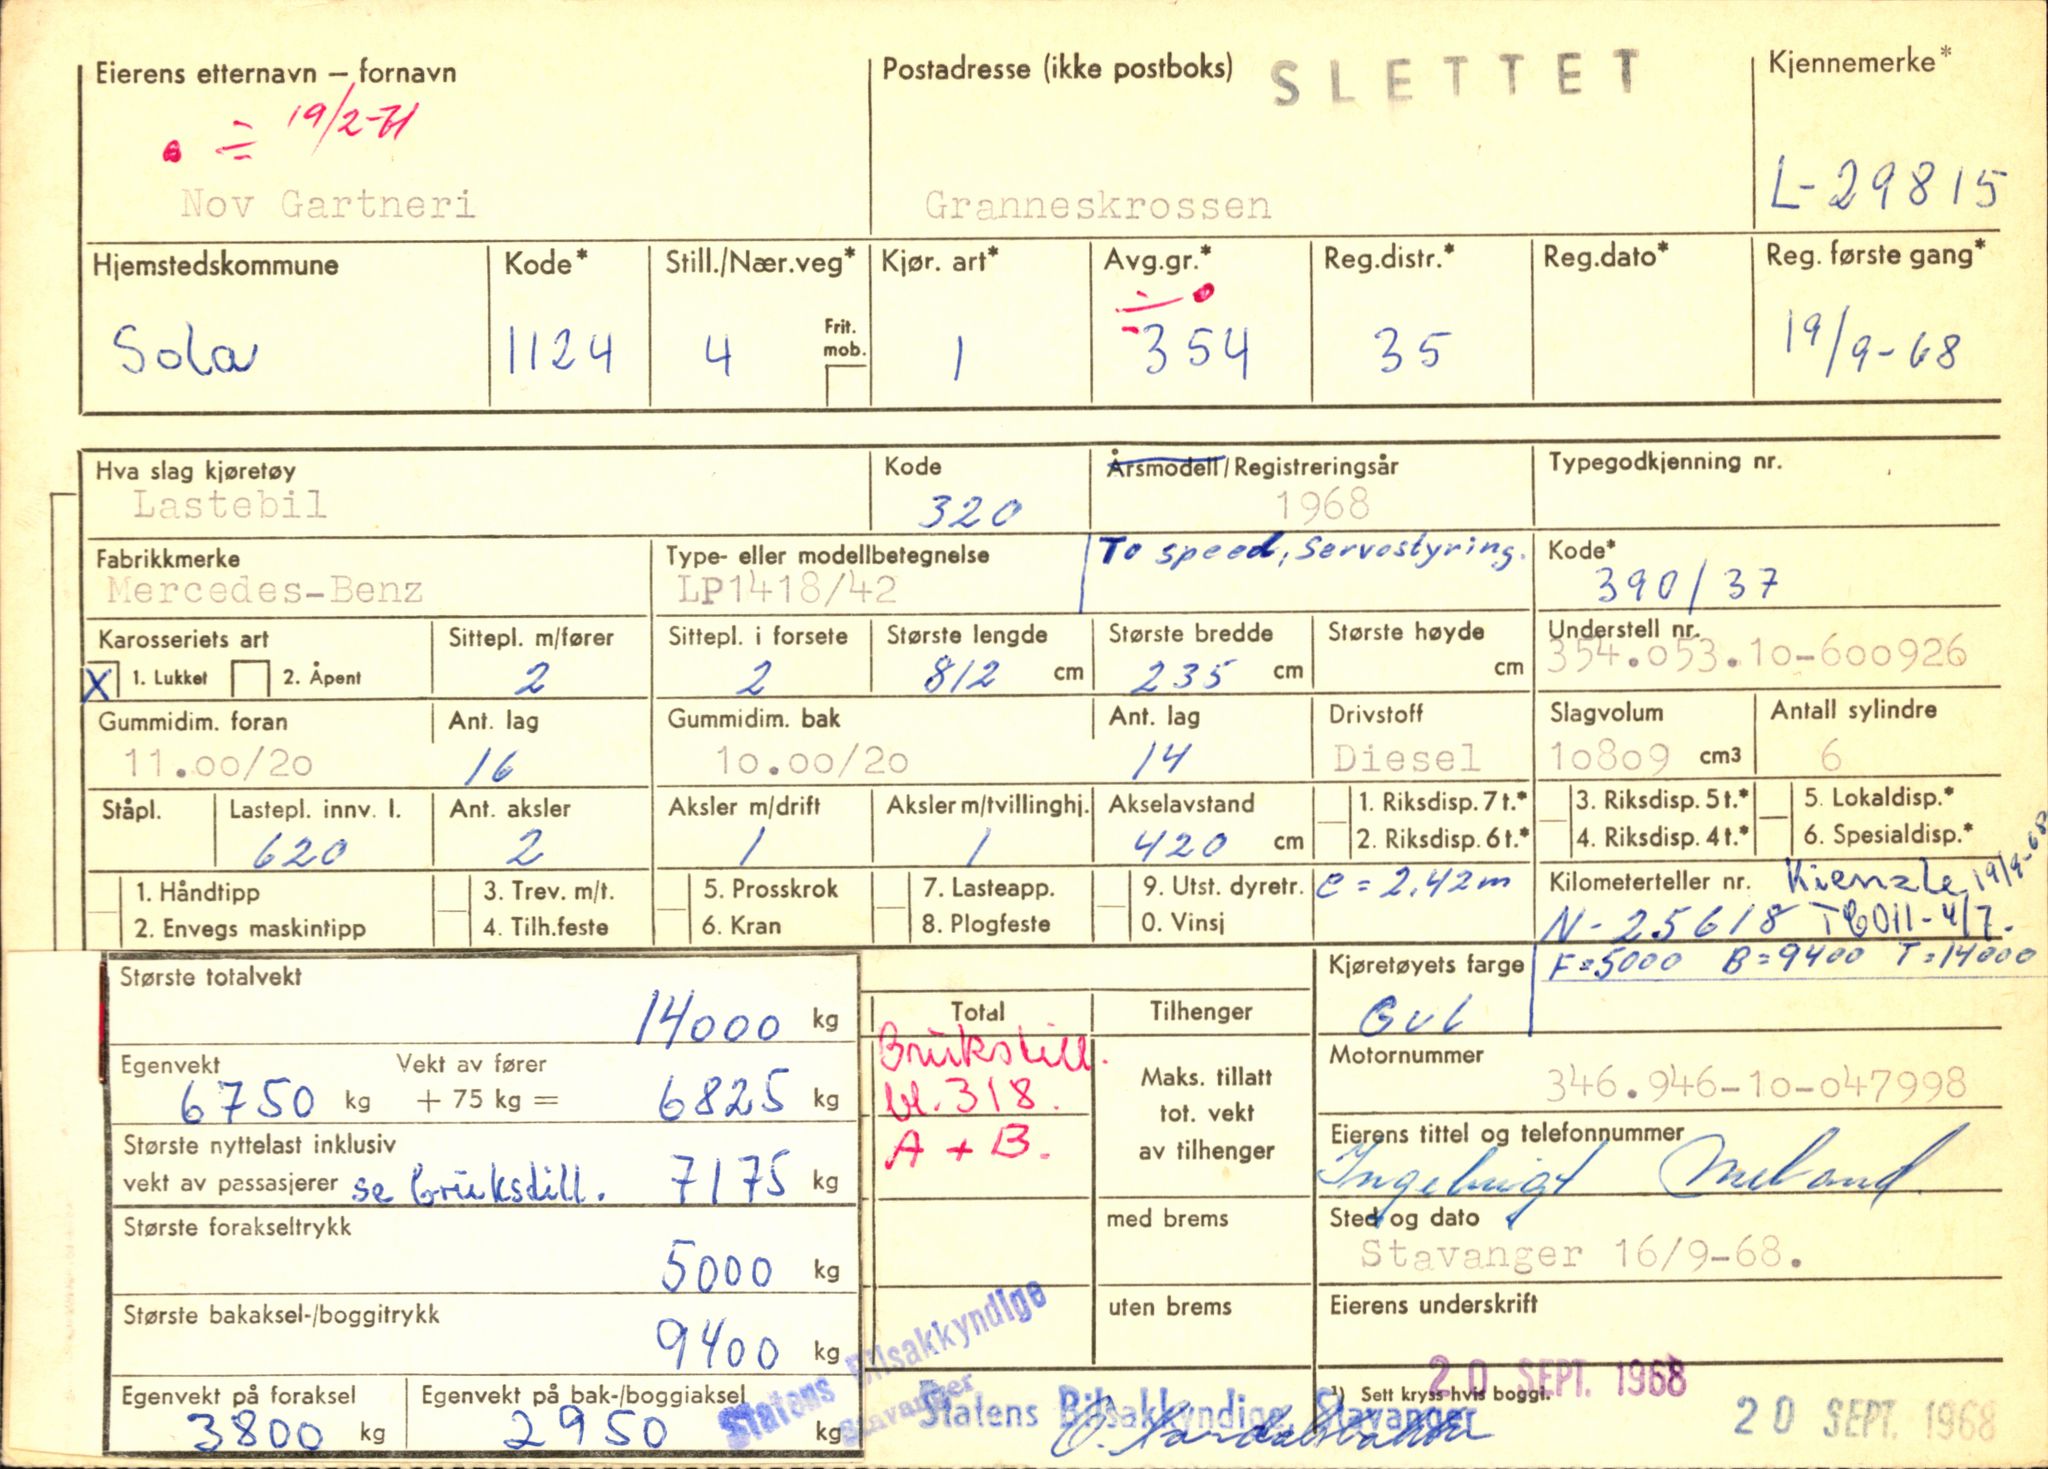 Eierens etternavn – fornavn
Postadresse (ikke postboks)
SLETTET
Kjennemerke*
÷ 19/2-71
Nov Gartneri
Granneskrossen
L-29815
Hjemstedskommune
Kode*
Still./Nær.veg*
Kjør. art*
Avg.gr.*
Reg.distr.*
Reg.dato*
Reg. første gang*
Sola
1124
4
Frit. mob.
1
÷ 354
35
19/9-68
Hva slag kjøretøy
Kode
Årsmodell/Registreringsår
Typegodkjenning nr.
Lastebil
320
1968
Fabrikkmerke
Type- eller modellbetegnelse
To speed, Servostyring.
Kode*
Mercedes-Benz
LP1418/42
390/37
Karosseriets art
Sittepl. m/fører
Sittepl. i forsete
Største lengde
Største bredde
Største høyde
Understell nr.
X 1. Lukket
2. Åpent
2
2
812 cm
235 cm
cm
354.053.10-600926
Gummidim. foran
Ant. lag
Gummidim. bak
Ant. lag
Drivstoff
Slagvolum
Antall sylindre
11.00/20
16
10.00/20
14
Diesel
10809 cm3
6
Ståpl.
Lastepl. innv. l.
Ant. aksler
Aksler m/drift
Aksler m/tvillinghj.
Akselavstand
1. Riksdisp. 7 t.*
3. Riksdisp. 5 t.*
5. Lokaldisp.*
620
2
1
1
420 cm
2. Riksdisp. 6 t.*
4. Riksdisp. 4 t.*
6. Spesialdisp.*
1. Håndtipp
3. Trev. m/t.
5. Prosskrok
7. Lasteapp.
9. Utst. dyretr.
e = 2,42m
Kilometerteller nr.
Kienzle 19/9-68
2. Envegs maskintipp
4. Tilh.feste
6. Kran
8. Plogfeste
0. Vinsj
N-25618
Største totalvekt
14000 kg
Total
Tilhenger
Kjøretøyets farge
F=5000 B=9400 T=14000
Gul
Egenvekt
Vekt av fører
6750 kg + 75 kg = 6825 kg
Brukstill.
bl. 318.
A + B.
Maks. tillatt
tot. vekt
av tilhenger
Motornummer
346.946-10-047998
Største nyttelast inklusiv
vekt av passasjerer se brukstill. 7175 kg
Eierens tittel og telefonnummer
Ingebrigt Meland
Største forakseltrykk
5000 kg
med brems
Sted og dato
Stavanger 16/9-68.
Største bakaksel-/boggitrykk
9400 kg
uten brems
Eierens underskrift
Egenvekt på foraksel
3800 kg
Egenvekt på bak-/boggiaksel
2950 kg
Statens Bilsakkyndige
Stavanger
Statens Bilsakkyndige, Stavanger
20 SEPT. 1968
¹) Sett kryss hvis boggi.
20 SEPT. 1968